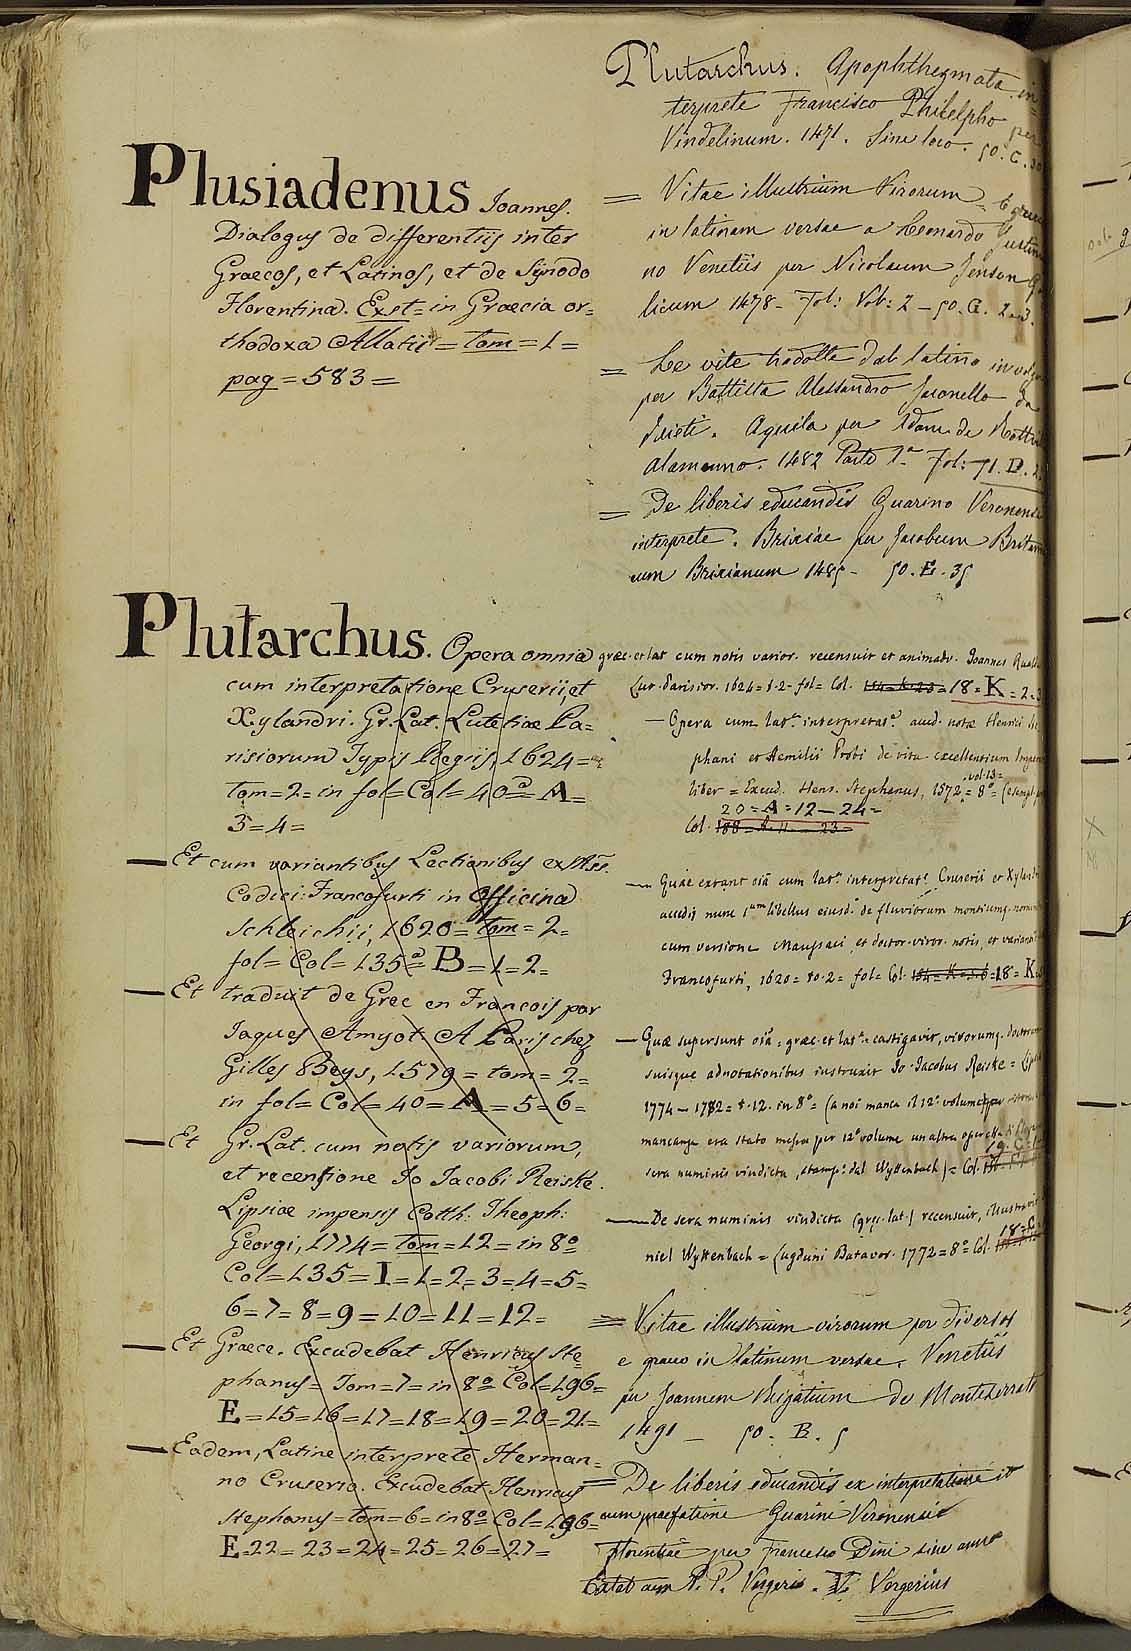 Plusiadenus Joannes.
Dialogus de differentiis inter
Graecos, et Latinos, et de Synodo
Florentina. Exst= in Graecia or=
thodoxa Allatii = tom = 1 =
pag = 583 =
Plutarchus. Opera omnia
cum interpretatione Cruserii, et
Xylandri. Gr. Lat. Lutetiae Pa=
risiorum Typis Regiis, 1624 =
tom = 2 = in fol = Col = 40 = A =
3 = 4 =
— Et cum variantibus Lectionibus ex Mss.
Codici: Francofurti in Officina
Schleichii, 1620 = tom = 2 =
fol = Col = 135 = B = 1 = 2 =
— Et traduit de Grec en François par
Jaques Amyot. A Paris chez
Gilles Beys, 1579 = tom = 2 =
in fol = Col = 40 = A = 5 = 6 =
— Et Gr. Lat. cum notis variorum,
et recensione Jo Jacobi Reiske.
Lipsiae impensis Gotth: Theoph:
Georgi, 1774 = tom = 12 = in 8º
Col = 135 = I = 1 = 2 = 3 = 4 = 5 =
6 = 7 = 8 = 9 = 10 = 11 = 12 =
— Et Graece. Excudebat Henricus Ste=
phanus = Tom = 7 = in 8º Col = 196 =
E = 15 = 16 = 17 = 18 = 19 = 20 = 21 =
— Eadem, Latine interprete Herman=
no Cruserio. Excudebat Henricus
Stephanus = tom = 6 = in 8º Col = 196 =
E = 22 = 23 = 24 = 25 = 26 = 27 =
Plutarchus. Apophthegmata in=
terprete Francisco Philelpho per
Vindelinum. 1471. Sine loco. 50. C.
= Vitae illustrium Virorum
in latinam versae a Leonardo Justin
no Venetiis per Nicolaum Jenson
licum 1478 - Fol: Vol: 2 - 50. G. 2. 3.
= Le vite tradotte dal latino in
per Battista Alessandro Jaconello da
Rieti. Aquila per Adam de
Alamanno. 1482 Parte 1ª Fol: 71. D. 2.
= De liberis educandis Guarino Veronensi
interprete. Brixiae per Jacobum Britan
cum Brixianum 1485 - 50. E. 35
graec. et lat cum notis varior. recensuit et animadv. Joannes
Lut. Parisior. 1624 = t. 2 - fol = Col. 18 = K = 2 = 3
— Opera cum latª interpretatº aud. notæ Henrici Ste
phani et Aemilii Probi de vita excellentium
liber = Excud. Henr. Stephanus, 1572 = vol. 13 = 8º =
20 = A = 12 — 24 =
Col. 188 = A. 11 — 23 =
— Quae extant oiã cum latª interpretatº Cruserii et
accedit nunc 1um libellus eiusd. de fluviorum montiumq.
cum versione Maussaci, et doctor. viror. notis, et
Francofurti, 1620 = to. 2 = fol = Col. 18 = K
— Quæ supersunt oiã, græc. et latª castigavit, virorumq.
suisque adnotationibus instruxit Jo. Jacobus Reiske =
1774 — 1782 = t. 12. in 8º = (a noi manca il 12º volume
mancanza era stato messo per 12º volume un altra
sera numinis vindicta, stamp: dal Wyttenbach) = Col.
— De sera numinis vindicta (græc. lat.) recensuit,
niel Wyttenbach = Lugduni Batavor. 1772 = 8º = Col.
= Vitae illustrium virorum per diversos
e graeco in latinum versae. Venetiis
per Joannem Rigatium de Monteferrato
1491 - 50. B. 5
= De liberis educandis ex interpretatione et
cum praefatione Guarini Veronensis
Florentiae per Francesco Dini sine anno
Extat cum P. P. Vergerio. V. Vergerius